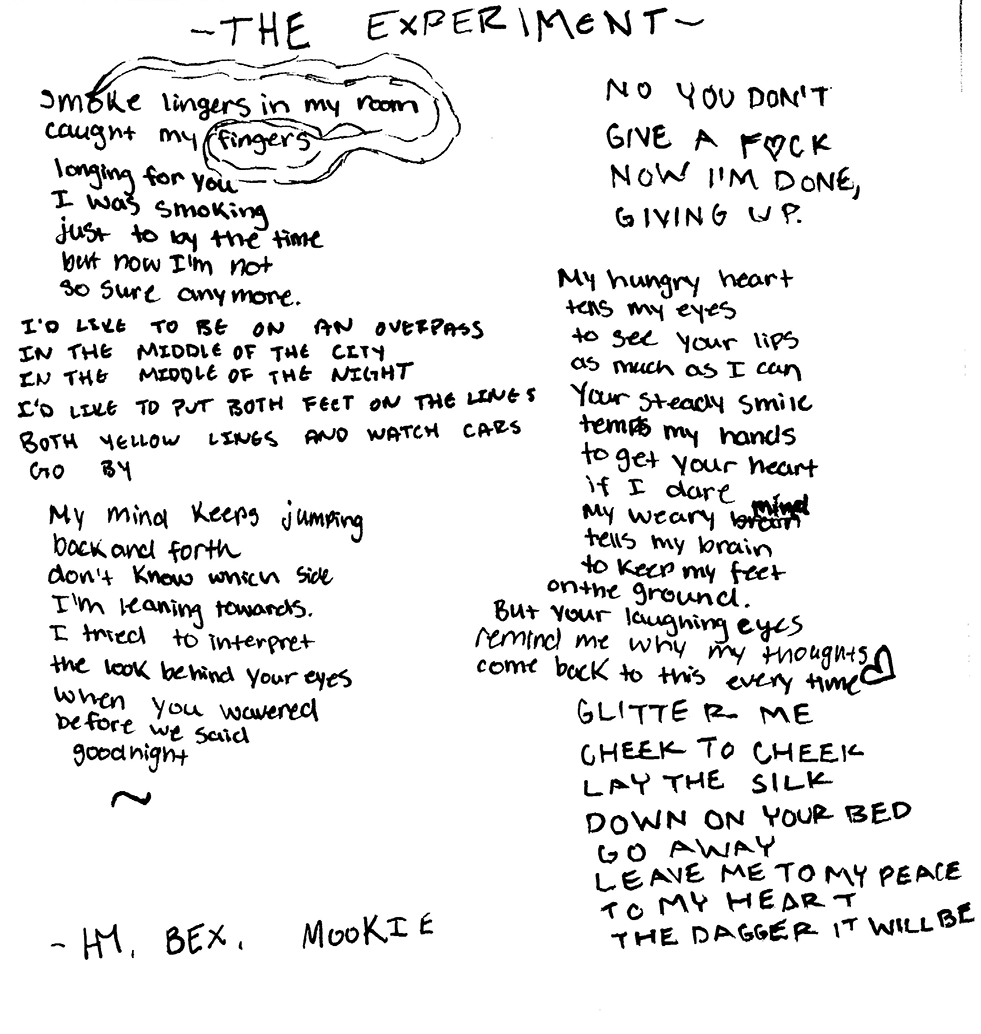 ~THE EXPERIMENT~
Smoke lingers in my room
caught my fingers
longing for you
I was smoking
just to by the time
but now I'm not
so sure anymore.
I'D LIKE TO BE ON AN OVERPASS
IN THE MIDDLE OF THE CITY
IN THE MIDDLE OF THE NIGHT
I'D LIKE TO PUT BOTH FEET ON THE LINES
BOTH YELLOW LINES AND WATCH CARS
GO BY
My mind keeps jumping
back and forth
don't know which side
I'm leaning towards.
I tried to interpret
the look behind your eyes
when you wavered
before we said
goodnight
~
- HM, BEX, MOOKIE
NO YOU DON'T
GIVE A F♡CK
NOW I'M DONE,
GIVING UP.
My hungry heart
tells my eyes
to see your lips
as much as I can
Your steady smile
temps my hands
to get your heart
if I dare
My weary mind
tells my brain
to keep my feet
on the ground.
But your laughing eyes
remind me why my thoughts
come back to this every time ♡
GLITTER ME
CHEEK TO CHEEK
LAY THE SILK
DOWN ON YOUR BED
GO AWAY
LEAVE ME TO MY PEACE
TO MY HEART
THE DAGGER IT WILL BE